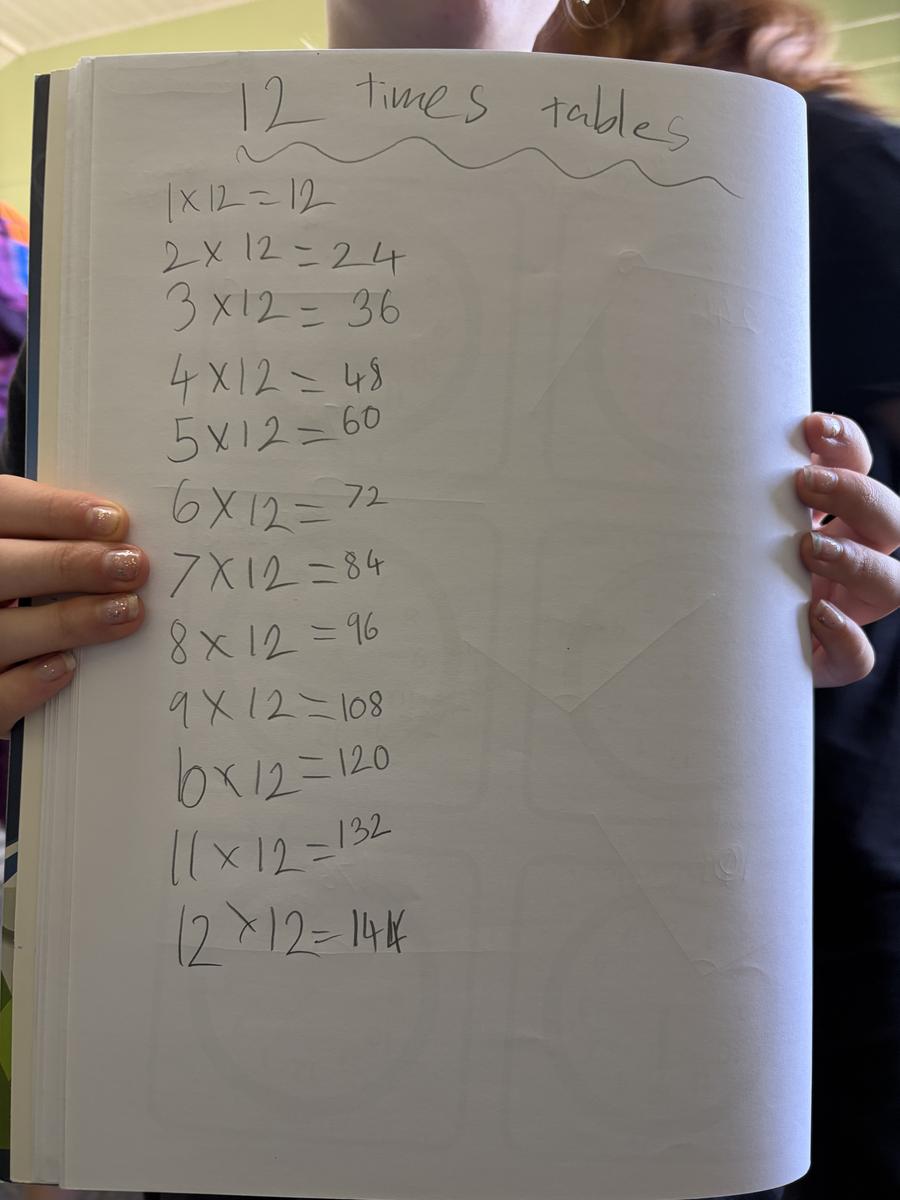 12 times tables
1x12=12
2x 12 = 24
3 x12 = 36
4 x12 = 48
5x12=60
6x12=72
7x12=84
8x12=96
9x12=108
10x12=120
11x12=132
12x12=144